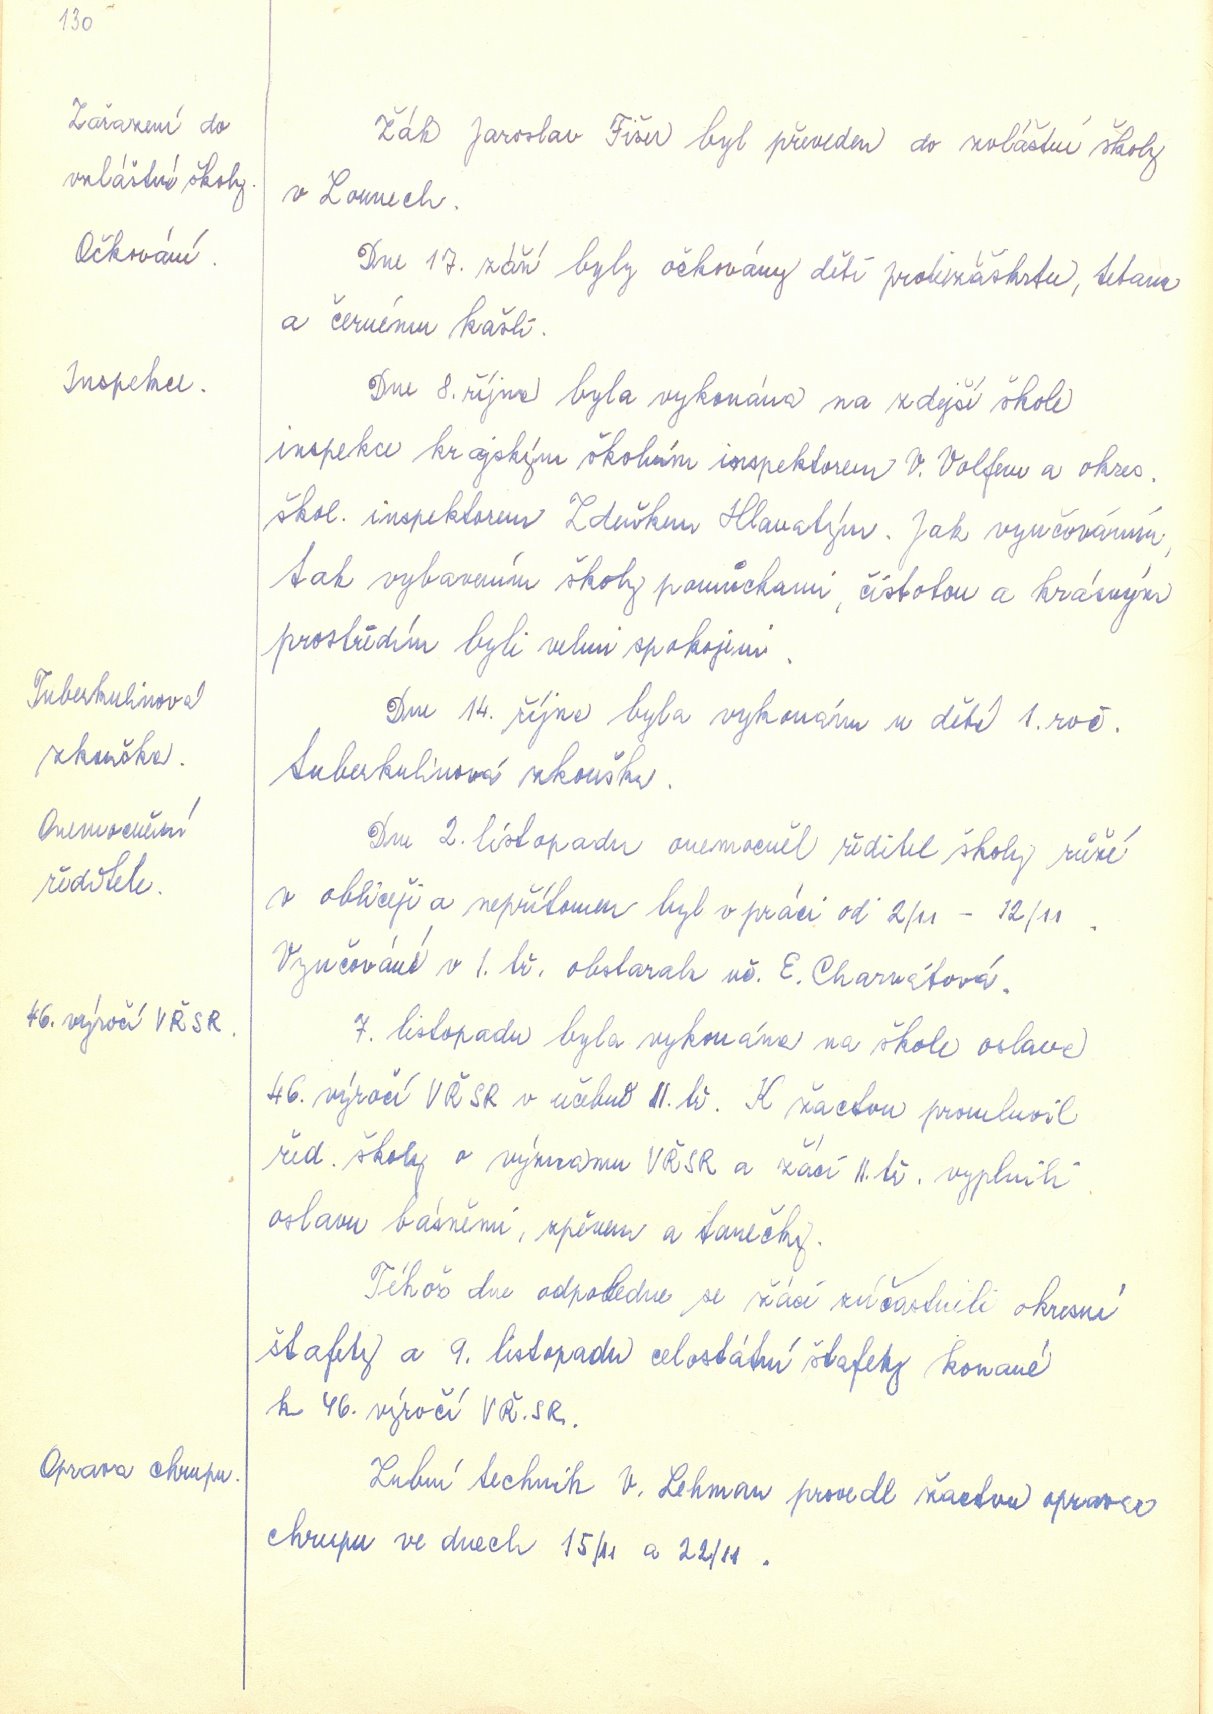 130
Zařazení do
zvláštní školy.
Žák Jaroslav Fišer byl převeden do zvláštní školy
v Lounech.
Očkování.
Dne 17. září byly očkovány děti proti záškrtu, tetanu
a černému kašli.
Inspekce.
Dne 8. října byla vykonána na zdejší škole
inspekce krajským školním inspektorem V. Volfem a okres.
škol. inspektorem Zdeňkem Hlavatým. Jak vyučováním,
tak vybavením školy pomůckami, čistotou a krásným
prostředím byli velmi spokojeni.
Tuberkulinová
zkouška.
Dne 14. října byla vykonána u dětí 1. roč.
tuberkulinová zkouška.
Onemocnění
ředitele.
Dne 2. listopadu onemocněl ředitel školy růží
v obličeji a nepřítomen byl v práci od 2/11 - 12/11.
Vyučování v 1. tř. obstarala uč. E. Charvátová.
46. výročí VŘSR.
7. listopadu byla vykonána na škole oslava
46. výročí VŘSR v učebně II. tř. K žactvu promluvil
řed. školy o významu VŘSR a žáci II. tř. vyplnili
oslavu básněmi, zpěvem a tanečky.
Téhož dne odpoledne se žáci zúčastnili okresní
štafety a 9. listopadu celostátní štafety konané
k 46. výročí VŘ.SR.
Oprava chrupu.
Zubní technik V. Lehman provedl žactvu opravu
chrupu ve dnech 15/11 a 22/11.